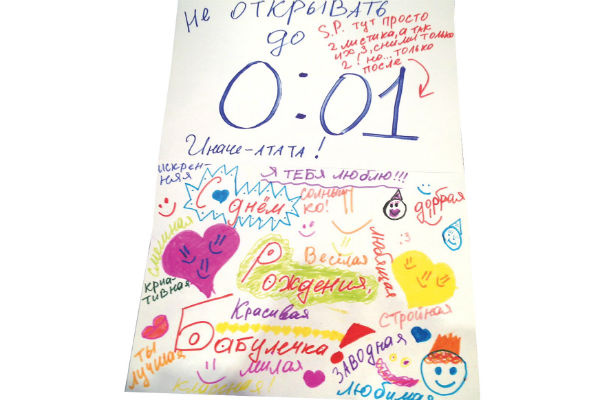 Не ОТКРЫВАТЬ
до
S.P. тут просто
2 листика, а так
их 3, сними только
2! но... только
после
0:01
Иначе-АТАТА!
искрен-
няя
Я ТЕБЯ ЛЮБЛЮ!!!
С
днём
солныш
ко!
добрая
смешная
любящая
:3
Весёлая
Рождения,
криа-
тивная
Красивая
Стройная
Бабулечка!
ты
лучшая
милая
ЗАВОДНАЯ
классная!
любимая